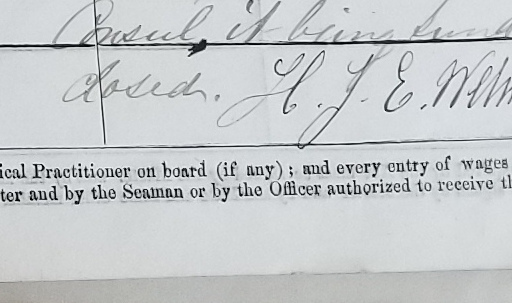 Consul, it being Sund
closed. H. J. E.
ical Practitioner on board (if any); and every entry of wages
ter and by the Seaman or by the Officer authorized to receive th